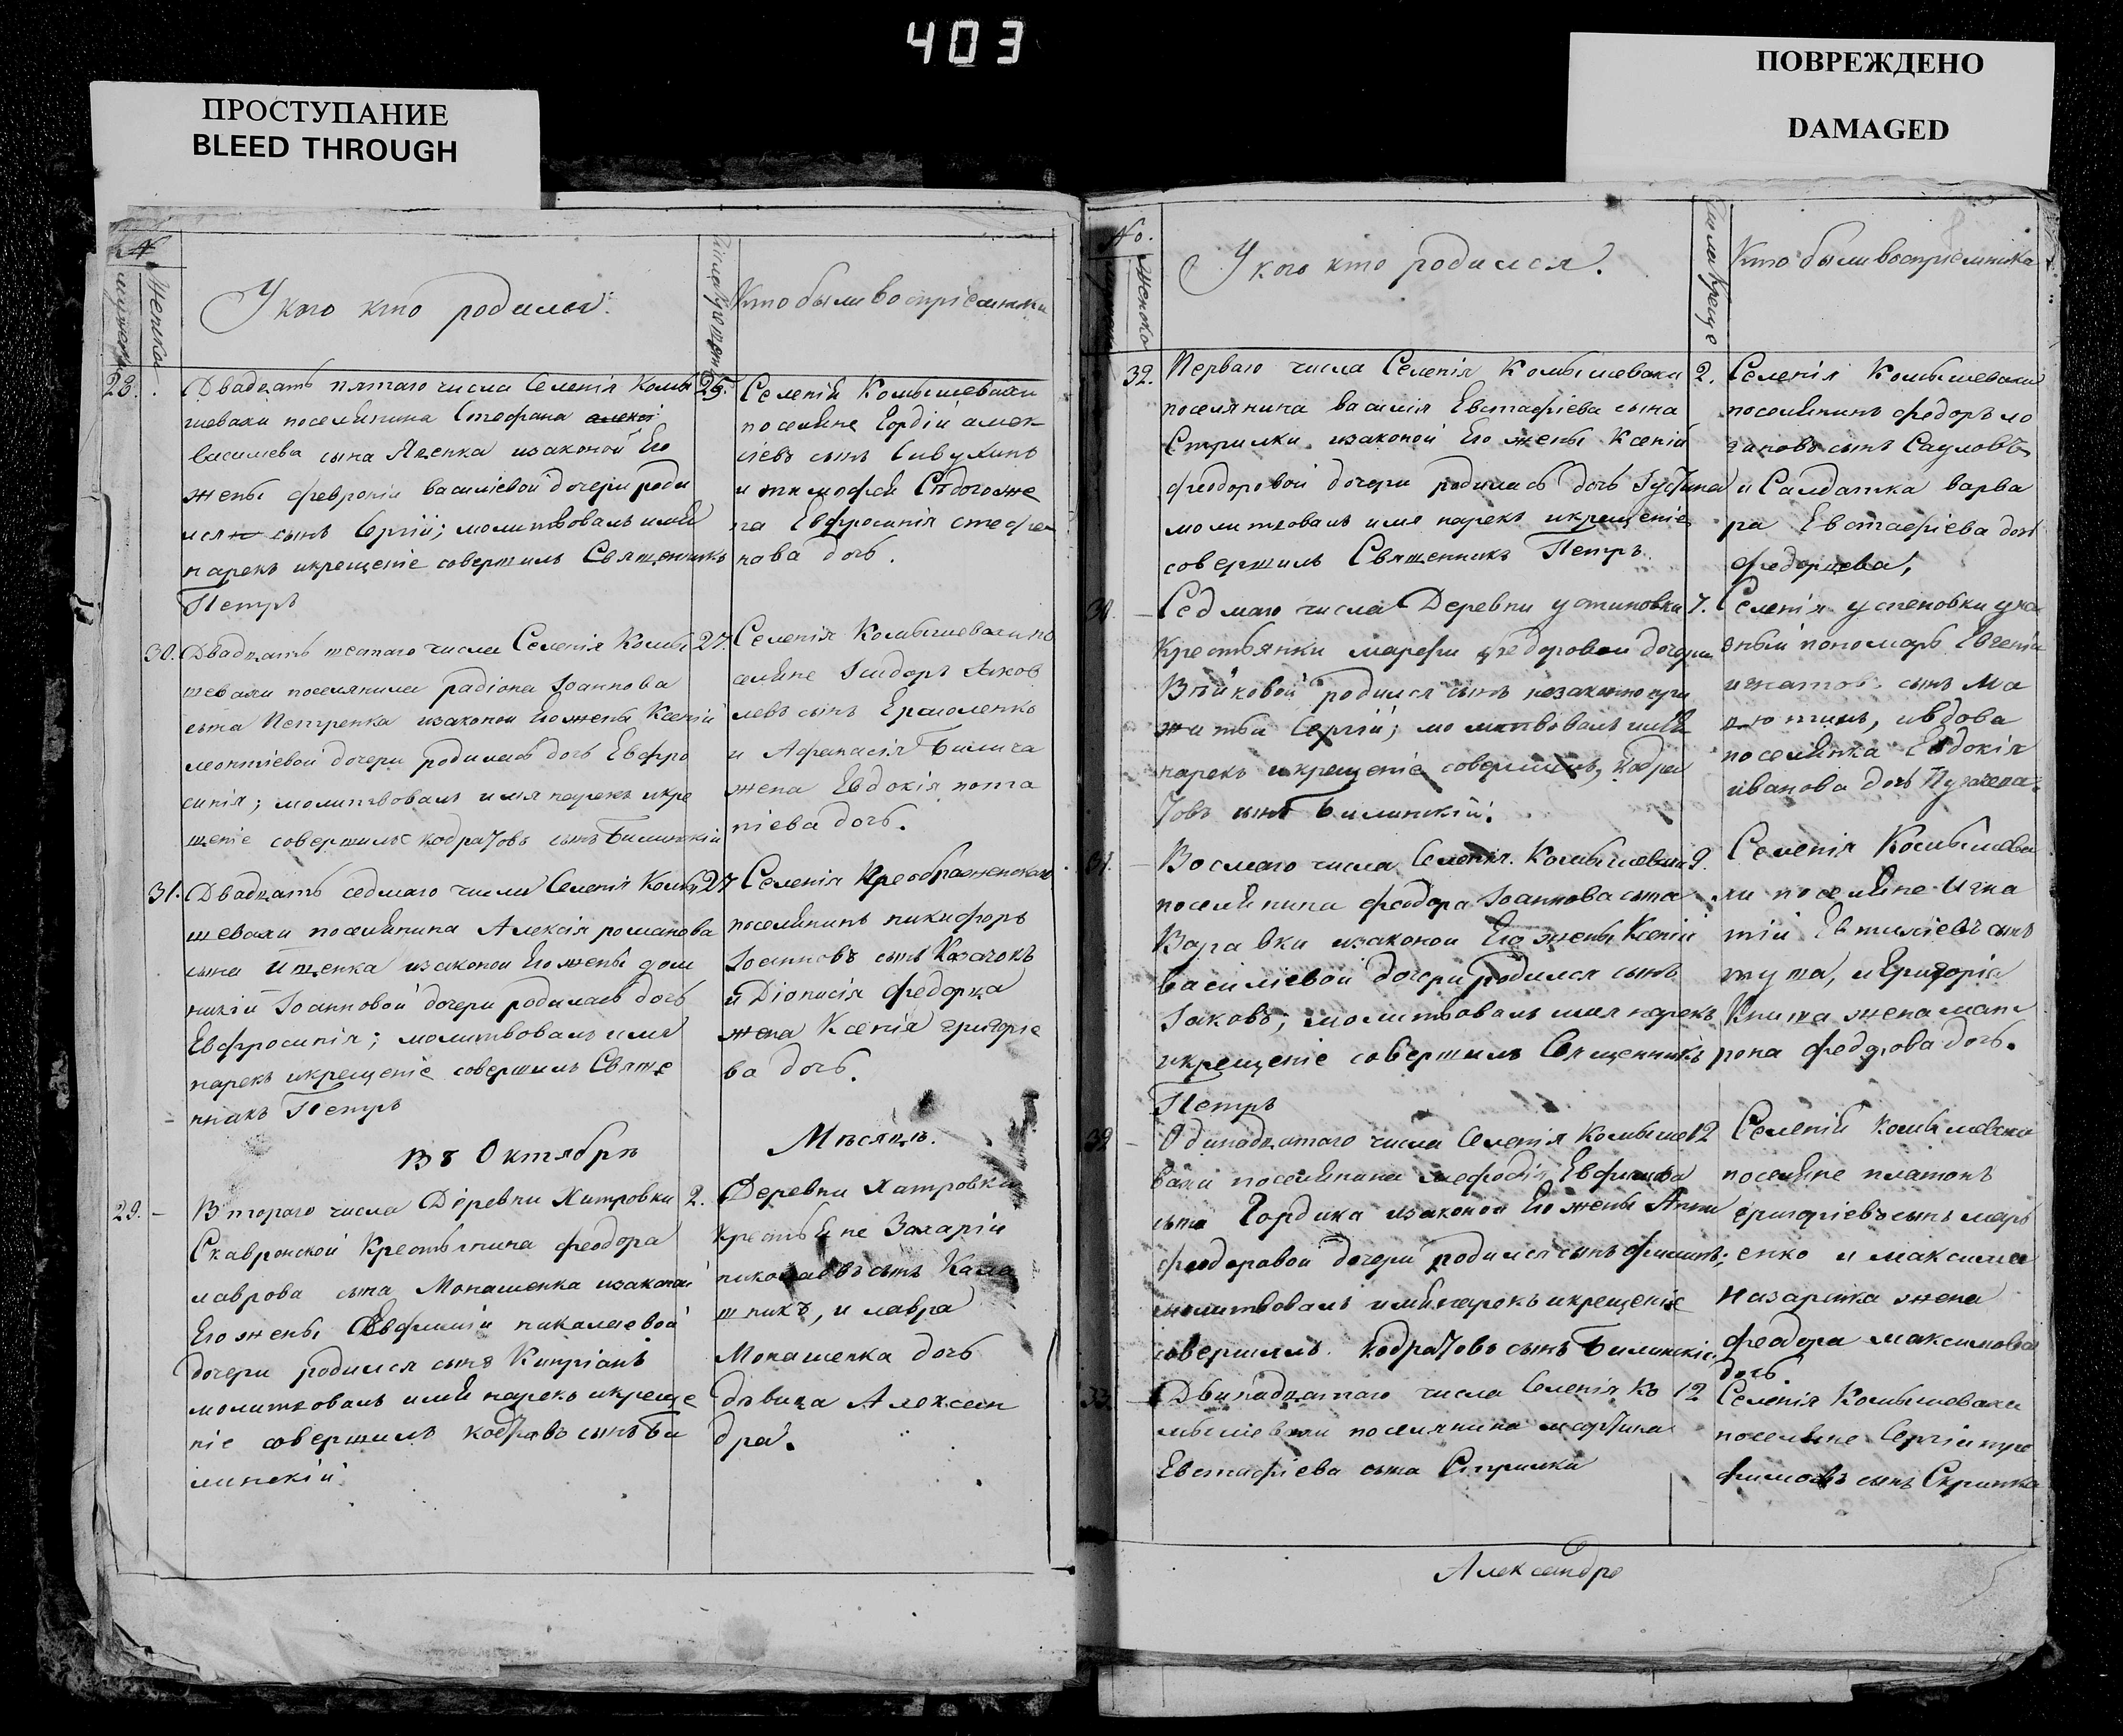 403
ПРОСТУПАНИЕ
BLEED THROUGH
ПОВРЕЖДЕНО
DAMAGED
№
мужеска
женска
У кого кто родился.
Кто были воспріемники
28.
Двадцать пятаго числа Селенія Комы
шевахи поселянина Стефана
василиева сына Яценка иззаконой Его
жены февроніи василіевой дочери роди
лся сынъ Сергій; молитвовалъ имя
нарекъ икрещеніе совершилъ Священникъ
Петръ
25.
Селенія Комышевахи
поселяне Гордій алек
сіевъ сынъ
и тимофея
на Евфросинія стефа
нова дочь.
30.
Двадцать шестаго числа Селенія Комы
шевахи поселянина радіона Іоаннова
сына Петренка иззаконой Его жены Ксеніи
леонтіевой дочери родилась дочь Евфро
синія; молитвовалъ имя нарекъ икре
щеніе совершилъ кодратовъ сынъ Билинскій
27.
Селенія Комышевахи по
селяне Ісидоръ яков
левъ сынъ Ермоленко
и Афанасія Билича
жена Евдокія пота
піева дочь.
31.
Двадцать седмаго числа Селенія Комы
шевахи поселянина Алексія романова
сына Ищенка иззаконой Его жены дом
никіи Іоанновой дочери родилась дочь
Евфросинія; молитвовалъ имя
нарекъ икрещеніе совершилъ Свяще
нникъ Петръ
27
Селенія Преображенскаго
поселянинъ никифоръ
Іоанновъ сынъ Казачокъ
и Діонисія федорца
жена Ксенія григорие
ва дочь.
Въ Октябръ
Мъсяцъ.
29.
Втораго числа Деревни Хитровки
Скавронской Крестьянина феодора
лаврова сына Монашенка иззаконой
Его жены Евфиміи николаевой
дочери родился сынъ Кипріанъ
молитвовалъ имя нарекъ икреще
ніе совершилъ кодратовъ сынъ Би
линскій
2.
Деревни Хитровки
крестьяне Захарій
николаевъ сынъ
и лавра
Монашенка дочь
дъвица Алексан
дра.
No.
Женска
У кого кто родился.
Числа креще
Кто были воспріемника
32.
Перваго числа Селенія Комышевахи
поселянина василія Евстафіева сына
Стрилки иззаконой Его жены Ксеніи
феодоровой дочери родилась дочь Іустина
молитвовалъ имя нарекъ икрещеніе
совершилъ Священникъ Петръ
2.
Селенія Комышевахи
поселянинъ федоръ ло
гановъ сынъ Сауловъ
и Салдатка варва
ра Евстафіева дочь
30.
Седмаго числа Деревни устиновки
Крестьянки марфы федоровой дочери
Войковой родился сынъ незаконно при
житый Сергій; молитвовалъ имя
нарекъ икрещеніе совершилъ, кодра
товъ сынъ Билинскій.
7.
Селенія успеновки ука
зный пономарь Евгеній
игнатовъ сынъ Ма
, ивдова
поселянка Евдокія
иванова дочь
31.
Восмаго числа Селенія Комышевахи
поселянина феодора Іоаннова сына
Варавки иззаконой Его жены Ксеніи
василіевой дочери родился сынъ
Іаковъ; молитвовалъ имя нарекъ
икрещеніе совершилъ Священникъ
Петръ
9.
Селенія Комышева
хи поселяне Игна
тій сынъ
, и Григорія
жена мат
рона федорова дочь.
32
Одинадцатаго числа Селенія Комыше
вахи поселянина мефодія Евфимова
сына Гордика иззаконой Его жены Анны
феодоровой дочери родился сынъ филипъ;
молитвовалъ имя нарекъ икрещеніе
совершилъ кодратовъ сынъ Билинскій
12
Селенія Комышевахи
поселяне платонъ
григоріевъ сынъ марч
енко и максима
Назаренка жена
феодора максимова
дочь.
33.
Двинадцатаго числа Селенія Ко
мышевахи поселянина мартина
Евстафіева сына Стрилки
12
Селенія Комышевахи
поселяне Сергій тро
фимовъ сынъ Скрипка
Александро